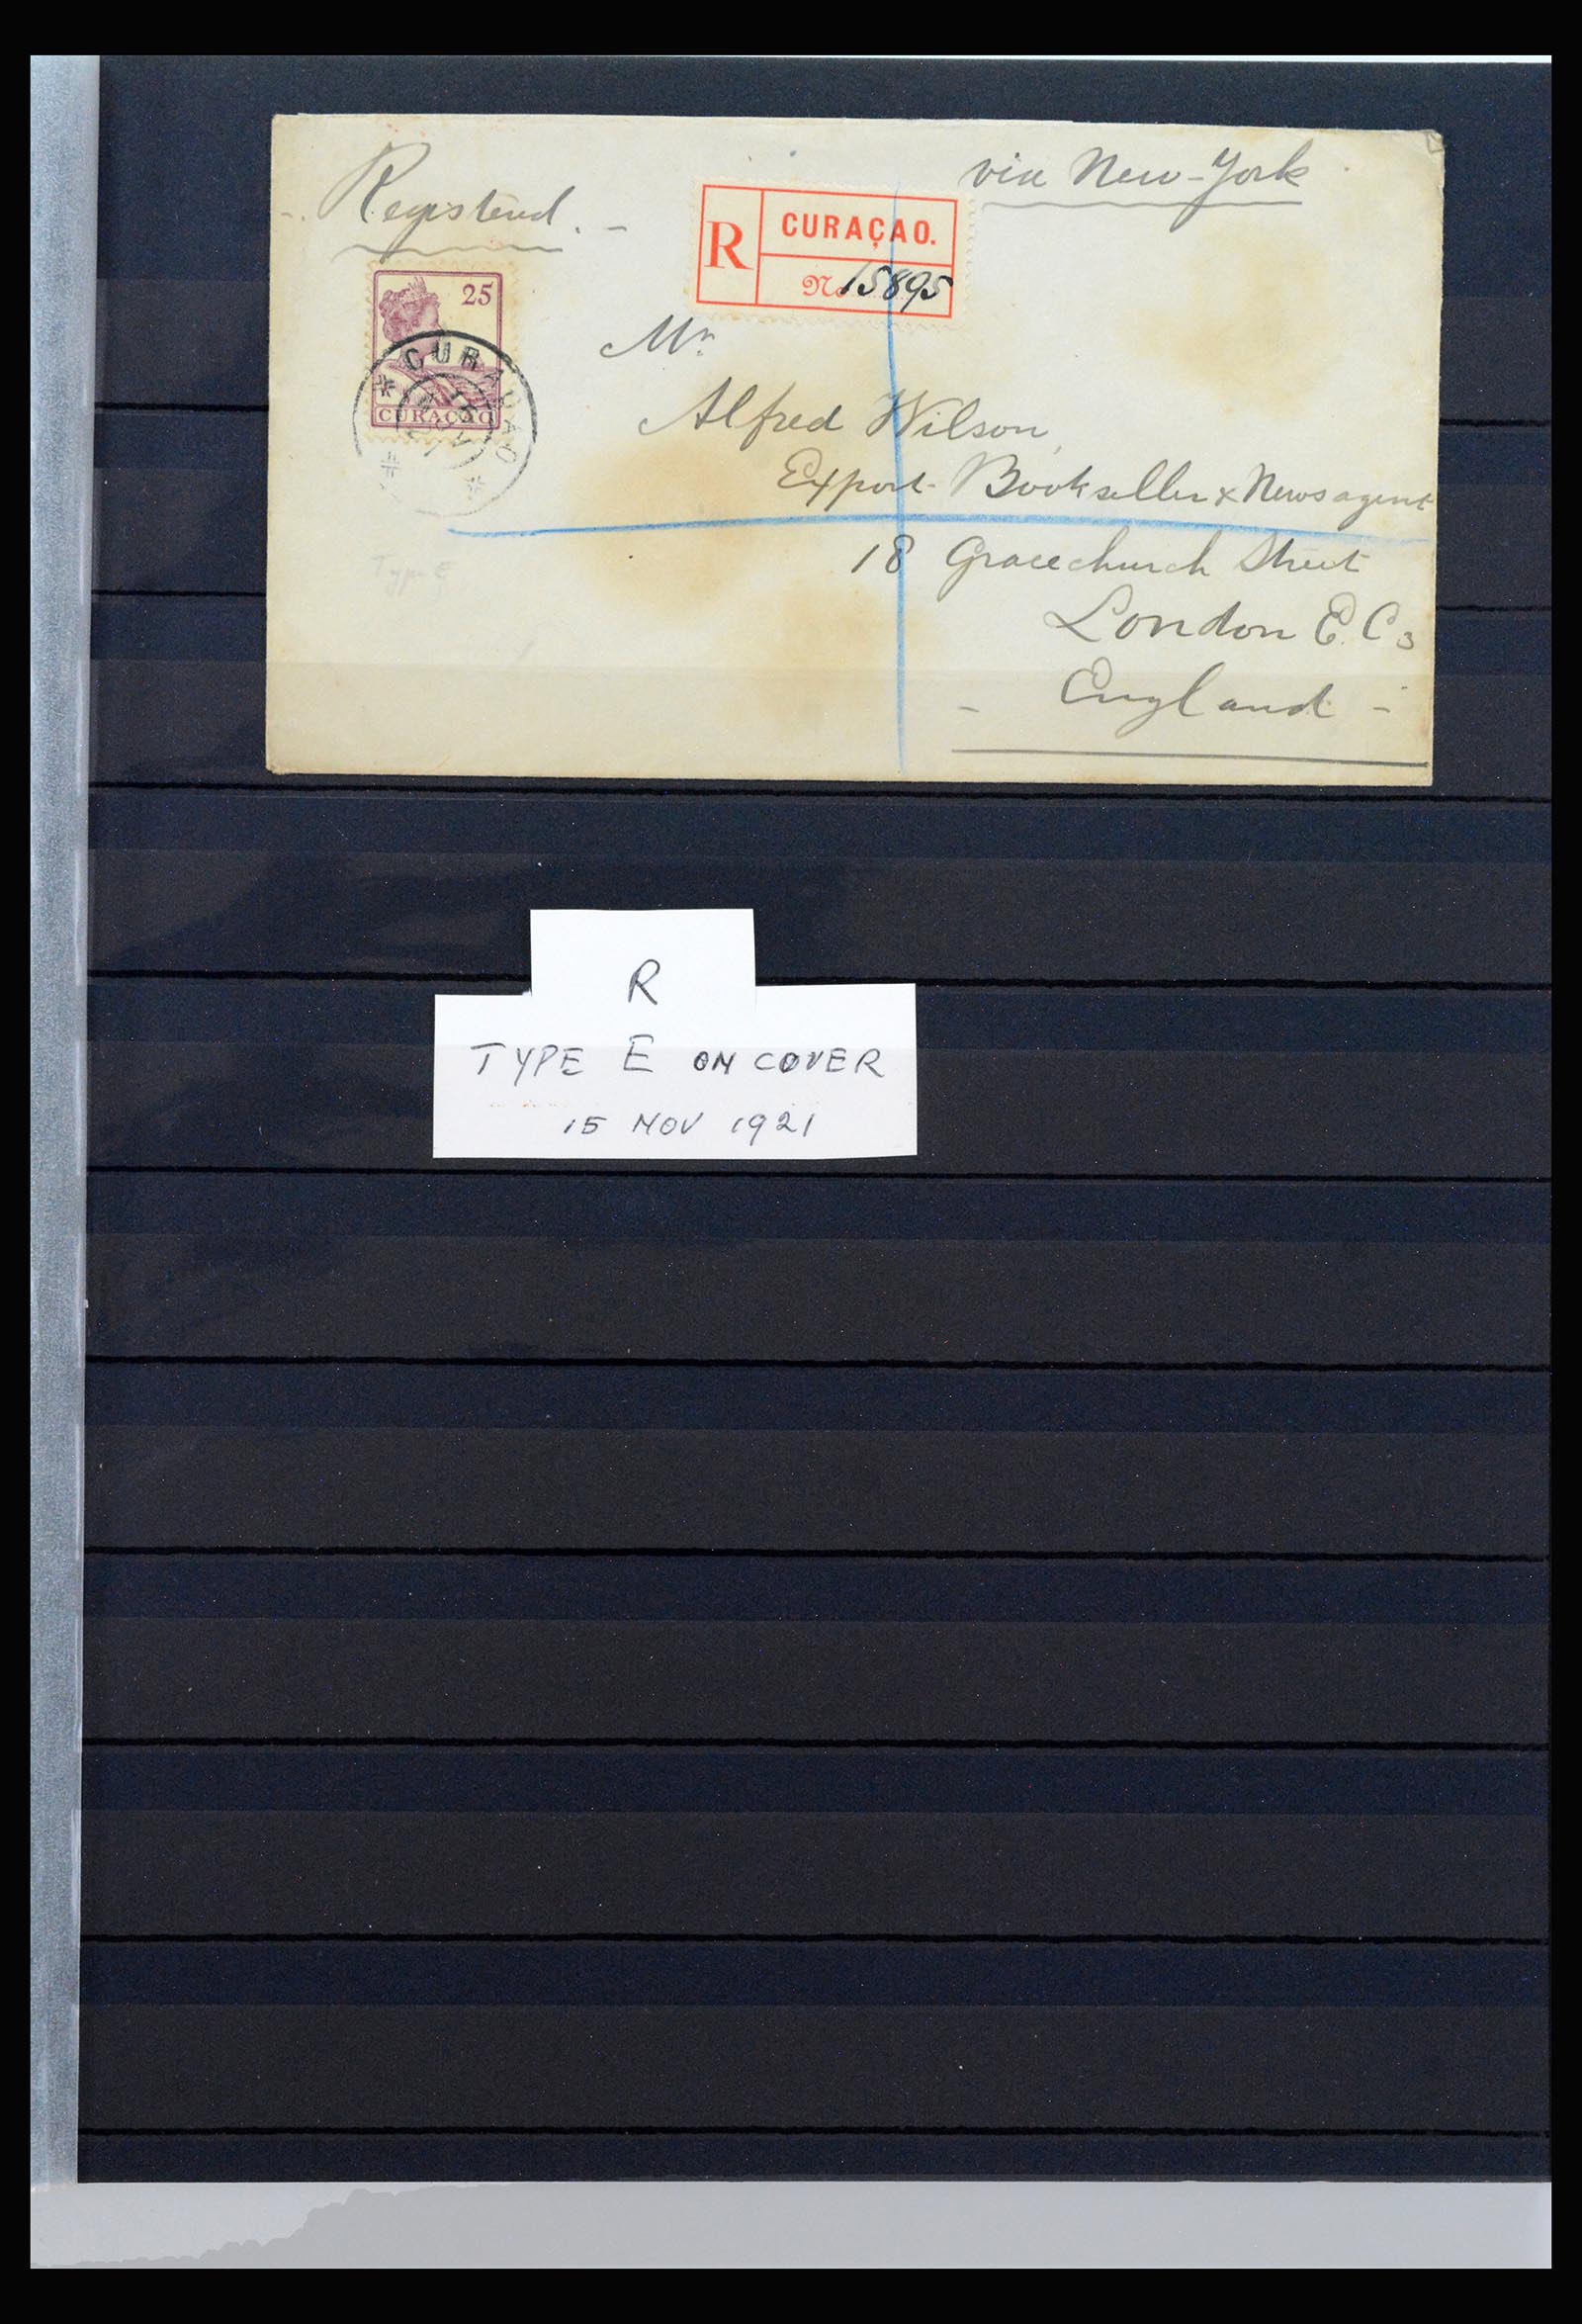 via New-York
Registered.
R
CURAÇAO.
No 15895
25
CURAÇAO
CURAÇAO
NOV
Mr.
Alfred Wilson,
Export-Bookseller & Newsagent
18 Gracechurch Street
London E.C 3
- England -
Type E
R
TYPE E ON COVER
15 NOV 1921